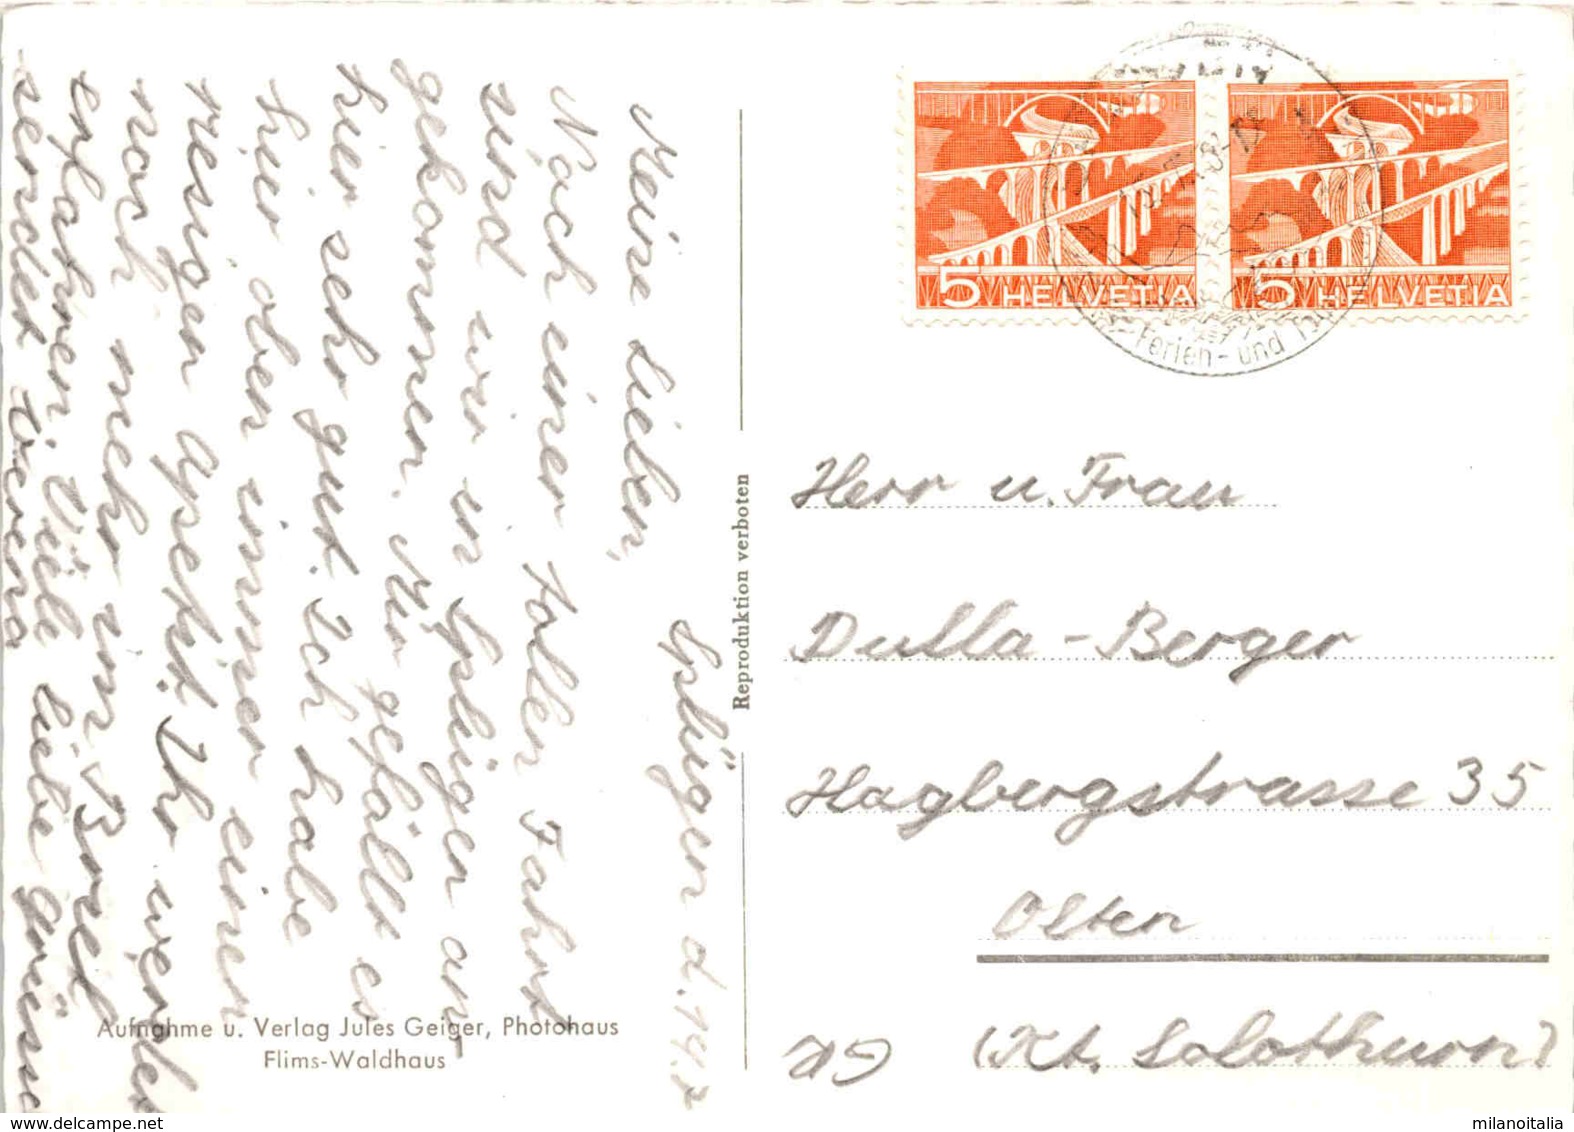 Splügen d. 14.7.
Meine Lieben,
Nach einer toller Fahrt
sind wir in Splügen an-
gekommen. Mir gefällt es
hier sehr gut. Ich habe
hier oben immer einen
riesigen Apetit. Ihr werdet
noch mehr im Brief
erfahren. Viele liebe Grüsse
sendet Verena
Aufnahme u. Verlag Jules Geiger, Photohaus
Flims-Waldhaus
Reproduktion verboten
5 HELVETIA
5 HELVETIA
Ferien- und
Herr u. Frau
Dulla-Berger
Hagbergstrasse 35
Olten
(Kt. Solothurn)
milanoitalia